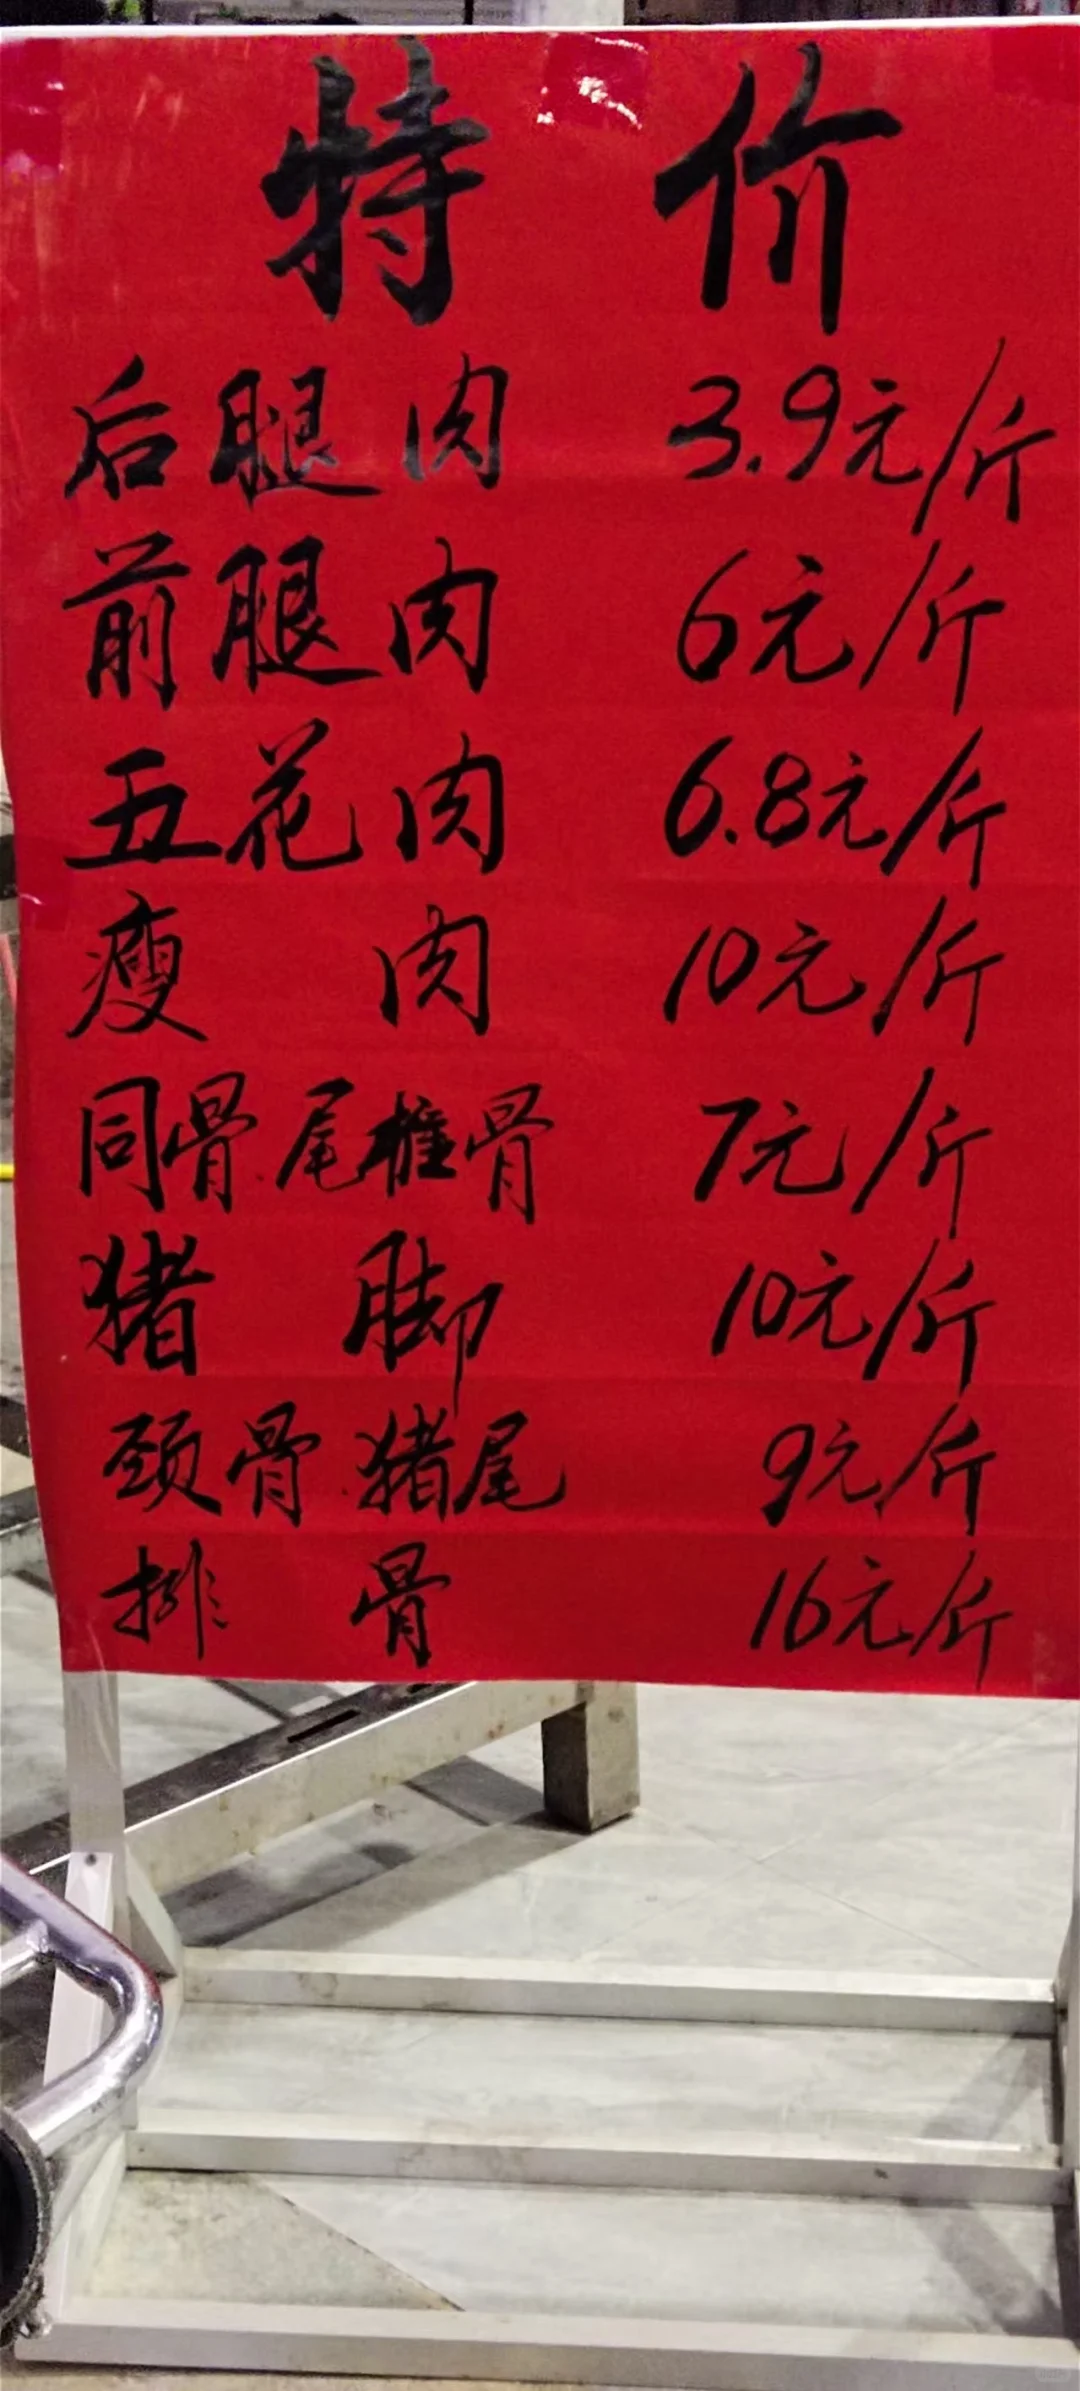 特价
后腿肉 3.9元/斤
前腿肉 6元/斤
五花肉 6.8元/斤
瘦肉 10元/斤
同骨.尾椎骨 7元/斤
猪脚 10元/斤
颈骨.猪尾 9元/斤
排骨 16元/斤